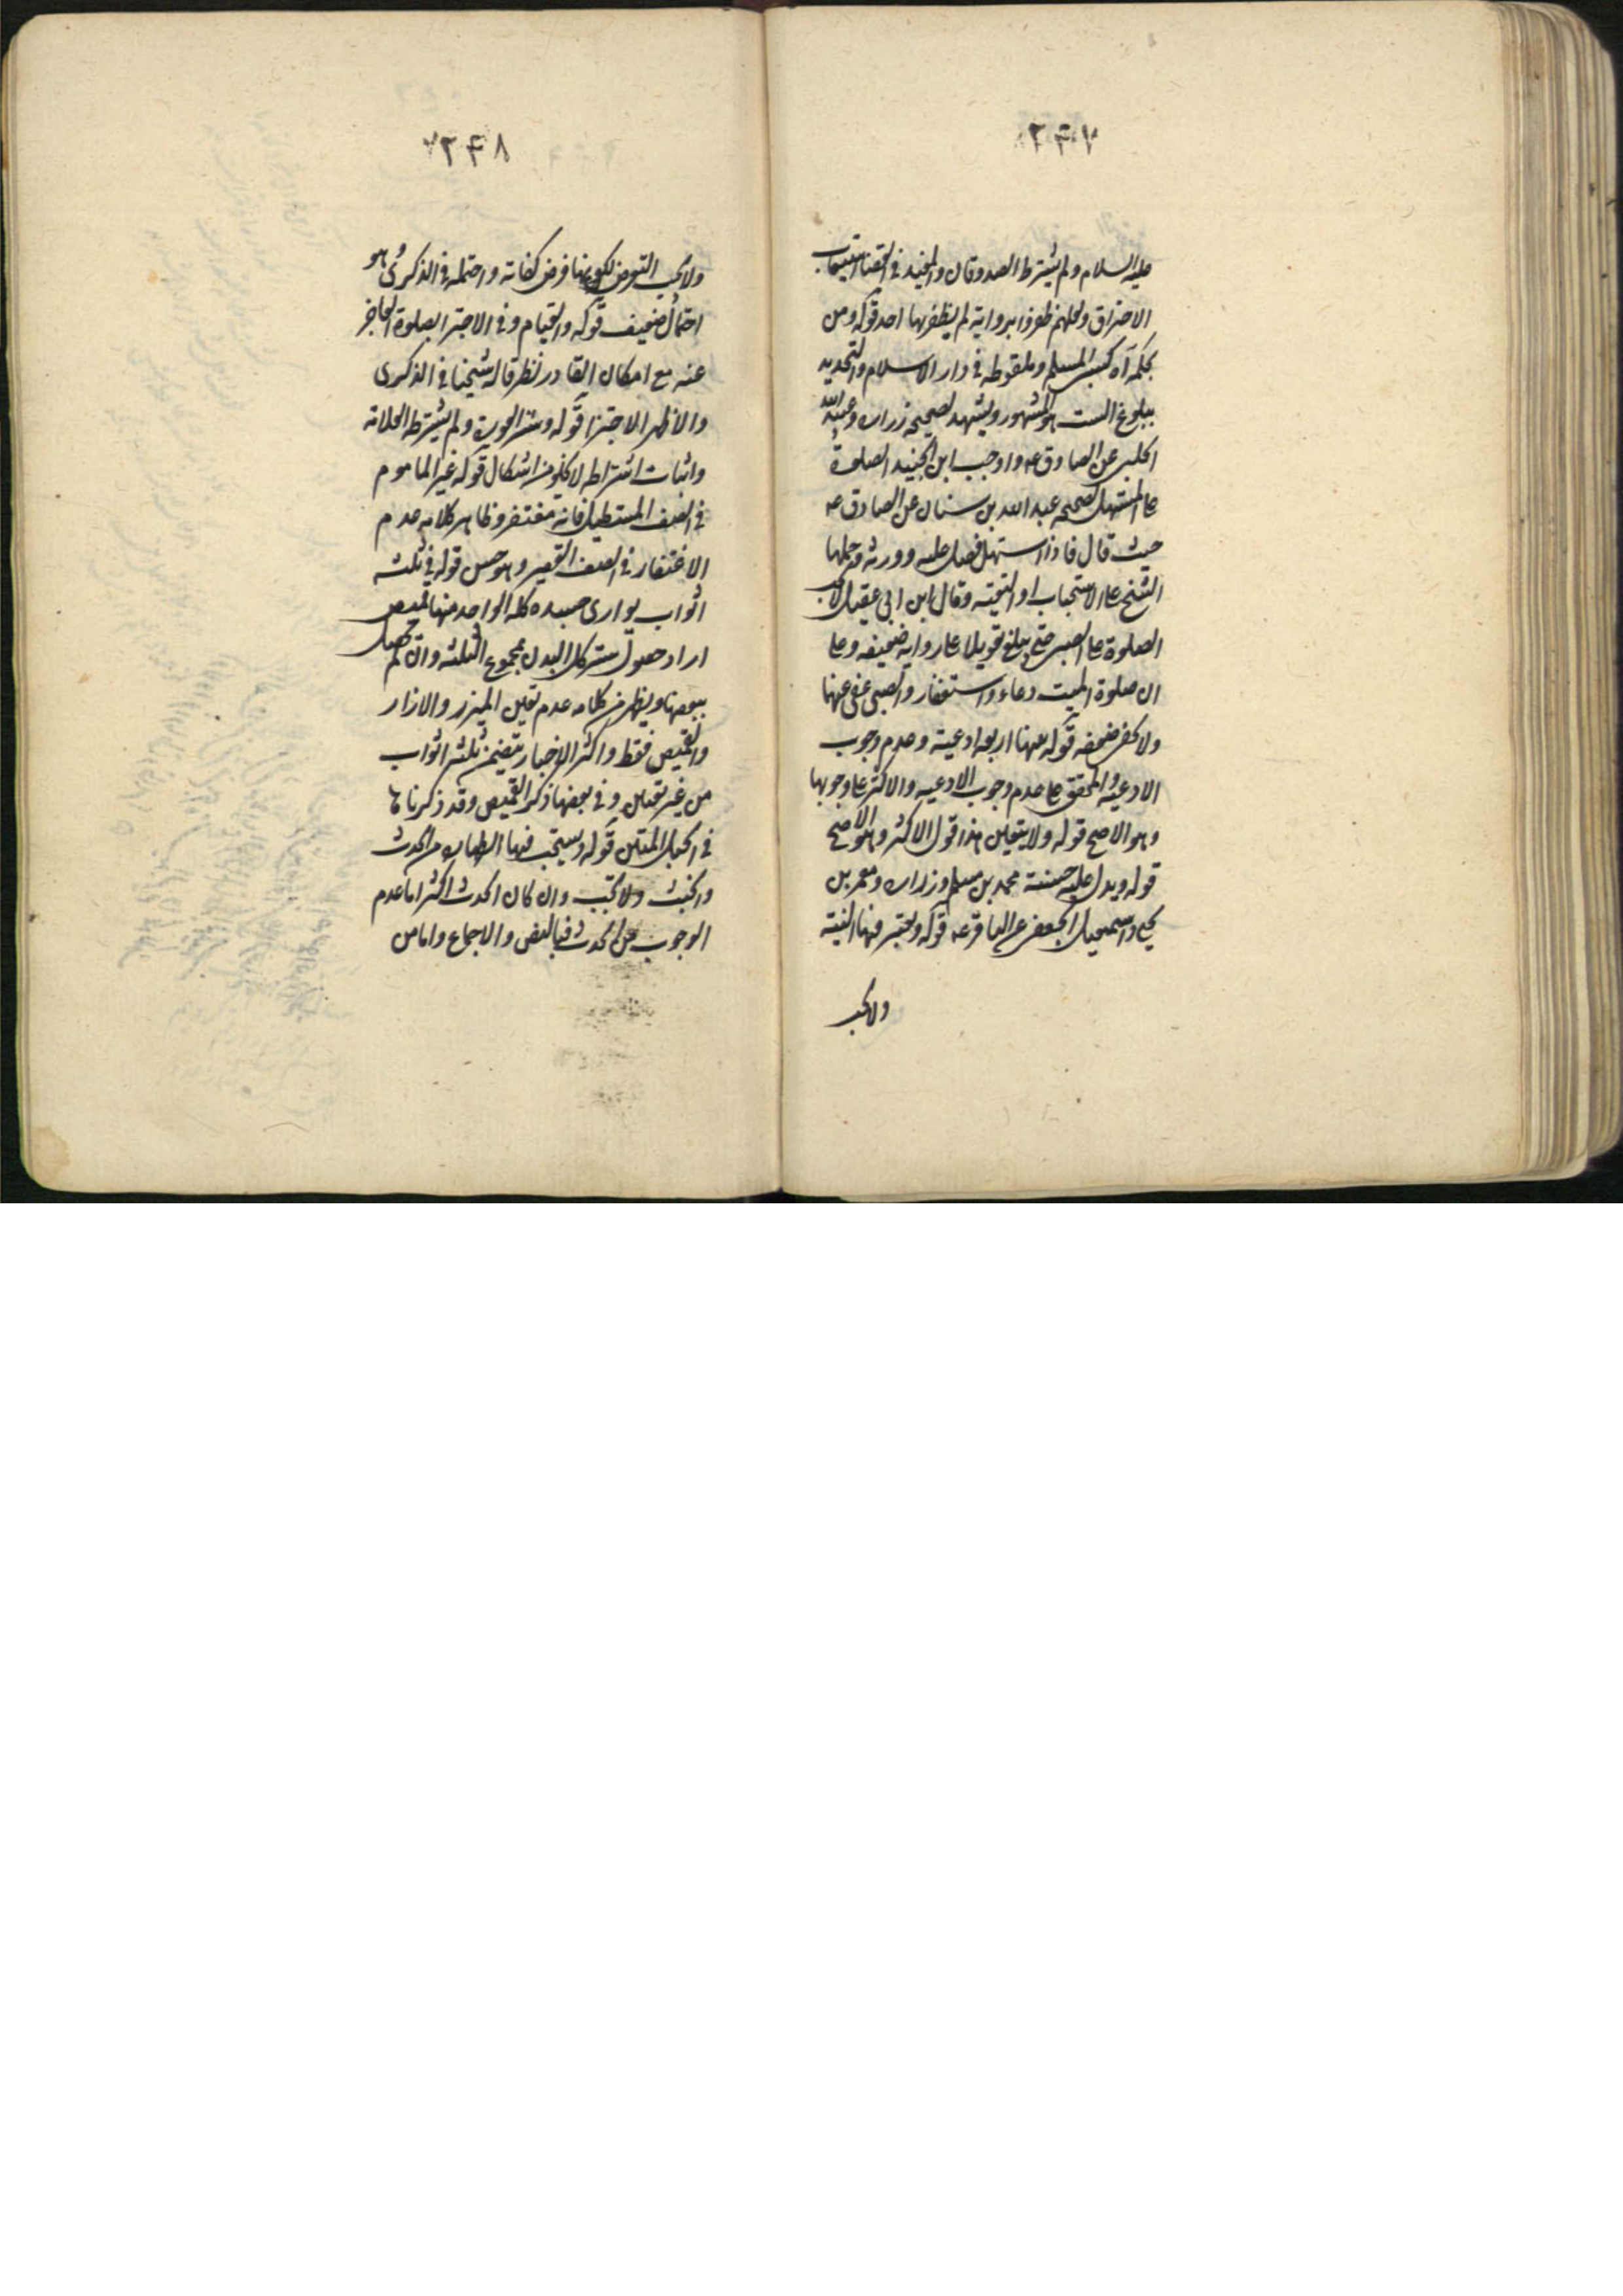 ۲۴۷
عليه السلام ولم يشترط الصدوقان والمفيد في
الاحتراق ولعلهم ظفروا برواية لم يظفر بها احد قوله ومن
بحكمه اه كسبي المسلم وملقوطه في دار الاسلام والتحديد
ببلوغ الست هو المشهور ويشهد لصحيحة زرارة وعبيد الله
الحلبي عن الصادق عه واوجب ابن الجنيد الصلوة
علی المستهل لصحيحه عبد الله بن سنان عن الصادق عه
حيث قال فاذا استهل فصل عليه وورثه وحملها
الشيخ علی الاستحباب او التقية وقال ابن ابي عقيل لا يجب
الصلوة علی الصبي حتی يبلغ تعويلا علی رواية ضعيفه وعلی
ان صلوة الميت دعاء واستغفار والصبي غني عنها
ولا يخفی ضعفه قوله بينها اربعه ادعية وعدم وجوب
الادعيه والمحقق علی عدم وجوب الادعيه والاكثر علی وجوبها
وهو الاصح قوله ولا يتعين هذا قول الاكثر وهو الاصح
قوله ويدل عليه حسنة محمد بن مسلم وزرارة ومعمر بن
يحيی واسمعيل الجعفي عن الباقر عه قوله ويعتبر فيها النية
ولا يجب
۲۴۸
ولا يجب التعرض لكونها فرض كفاية واحتمله في الذكری وهو
احتمال ضعيف قوله والقيام وفي الاجتزا بصلوة العاجز
عنه مع امكان القادر نظر قاله شيخنا في الذكری
والاظهر الاجتزا قوله وستر العورة ولم يشترطه العلامة
واثبات اشتراطه لا يخلو من اشكال قوله غير الماموم
في الصف المستطيل فانه مغتفر وظاهر كلامه عدم
الاغتفار في الصف القصير وهو حسن قوله في ثلثه
اثواب يواری جسده كله الواحد منها لميص
اراد حصول ستر كل البدن بمجموع الثلثه وان لم يحصل
ببعضها ويظهر من كلامه عدم تعين الميزر والازار
والقميص فقط واكثر الاخبار يتضمن ثلثه اثواب
من غير تعيين وفي بعضها ذكر القميص وقد ذكرناها
في الحبل المتين قوله ويستحب فيها الطهارة من الحدث
والخبث ولا تجب وان كان الحدث اكثر اما عدم
الوجوب عن الحدث فبالنص والاجماع واما من